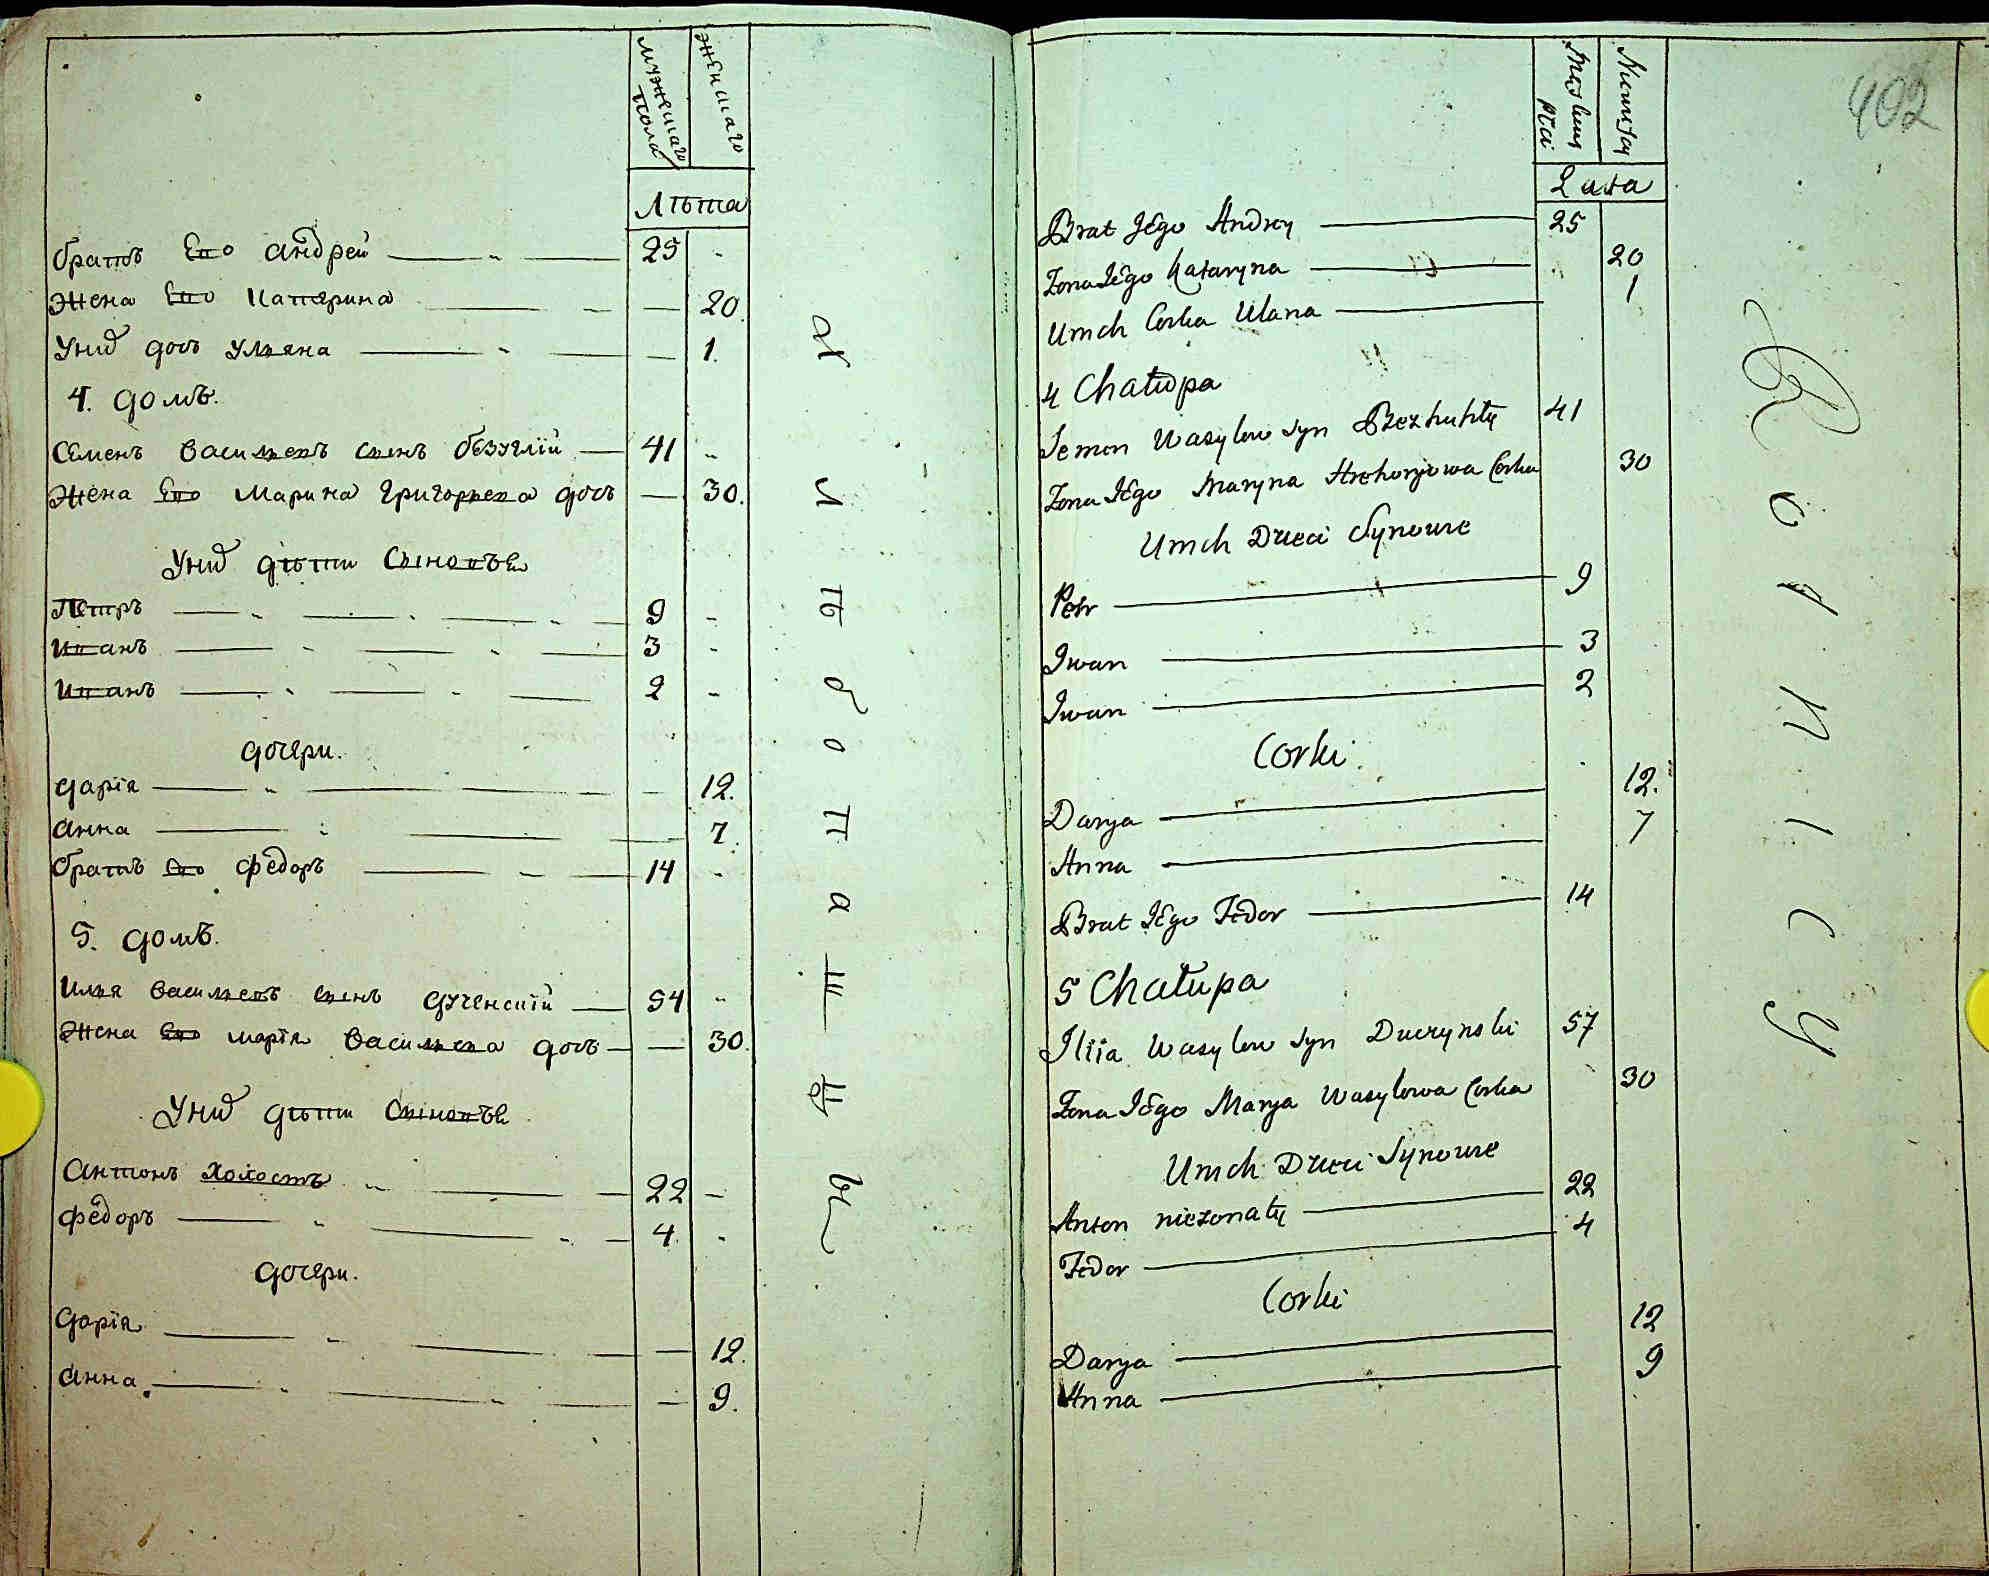 мужескаго пола
женскаго
Лѣта
братъ Его андрей 25
жена Его катерина 20.
У нихъ дочь ульяна 1.
4. домъ.
Семенъ васильевъ сынъ безуглій 41
жена Его марина григорьева дочь 30.
У нихъ дѣти Сыновѣи
Петръ 9
иванъ 3
иванъ 2
дочери.
дарія 12.
анна 7.
братъ Его федоръ 14
5. домъ.
илья васильевъ сынъ дученскій 54
жена Его марія васильева дочь 30.
У нихъ дѣти Сыновѣе
антонъ холостъ 22
федоръ 4.
дочери.
дарія 12.
анна 9.
хлѣбопашцы
402
Męskiey płci
Niewiesciey
Lata
Brat Jego Andrey 25
Zona Jego Kataryna 20
U nich Corka Ulana 1
4 Chałupa
Semen Wasylow syn Bezhuhły 41
Zona Jego Maryna Hrehorjowa Corka 30
U nich Dzieci Synowie
Petr 9
Iwan 3
Iwan 2
Corki
Darya 12.
Anna 7
Brat Jego Fedor 14
5 Chałupa
Iliia Wasylow syn Duczynski 57
Zona Jego Marya Wasylowa Corka 30
U nich Dzieci Synowie
Anton niezonaty 22
Fedor 4
Corki
Darya 12
Anna 9
Rolnicy